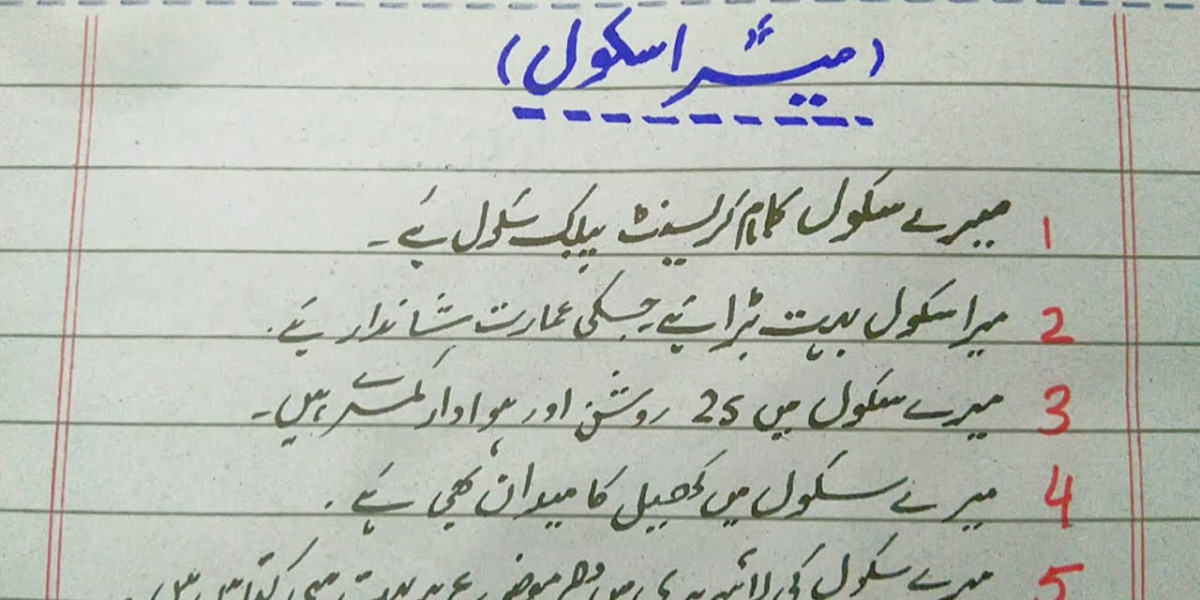 (میرا اسکول)
1 میرے سکول کا نام کریسنٹ پبلک سکول ہے۔
2 میرا سکول بہت بڑا ہے۔ جسکی عمارت شاندار ہے۔
3 میرے سکول میں 25 روشن اور ہوادار کمرے ہیں۔
4 میرے سکول میں کھیل کا میدان بھی ہے۔
5 میرے سکول کی لائبریری میں ہر موضوع پر بہت سی کتابیں ہیں۔